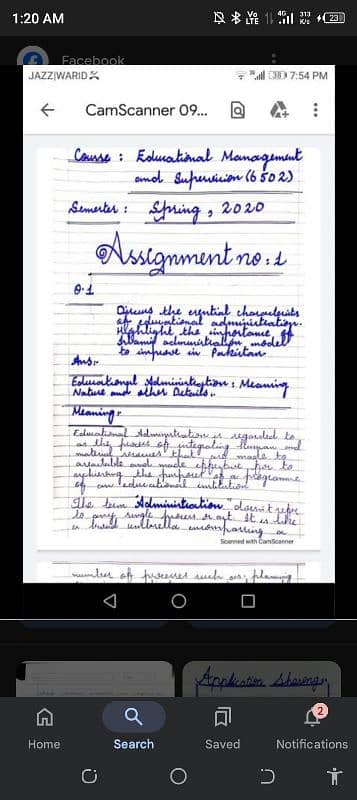 1:20 AM
Vo LTE 4G 313 K/s 23
Facebook
JAZZ|WARID 7:54 PM
CamScanner 09...
Course : Educational Management
and Supervision (6502)
Semester : Spring, 2020
Assignment no : 1
Q.1
Discuss the essential characteristics
of educational administration.
Highlight the importance of
Islamic administration model
to improve in Pakistan
Ans:-
Educational Administration : Meaning
Nature and other Details..
Meaning:-
Educational Administration is regarded to
as the process of integrating human and
material resources that are made to
available and made effective for to
achieving the purpose of a programme
of an educational institution
The term "Administration" doesn't refer
to any single process or act. It is like
a broad umbrella encompassing a
Scanned with CamScanner
number of processes such as: planning
Application sharing
Home
Search
Saved
2
Notifications